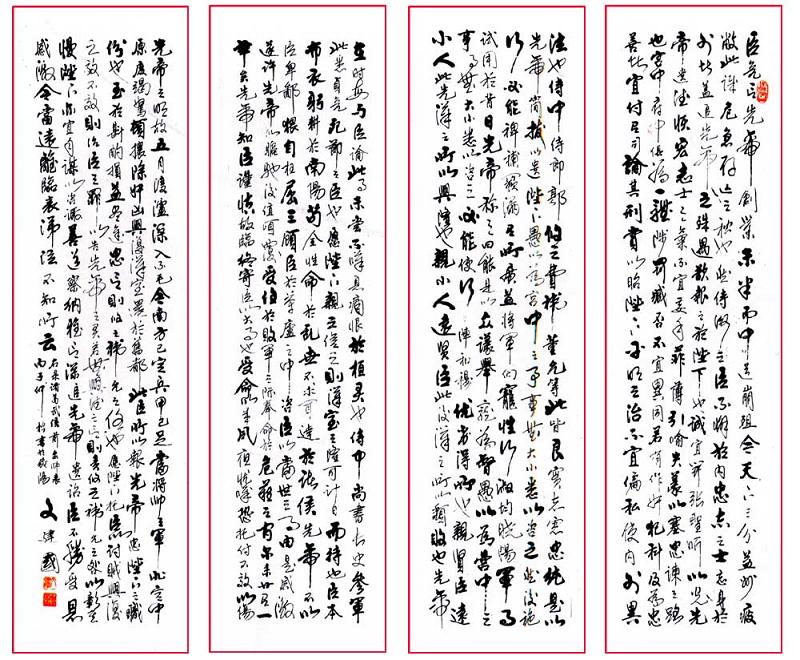 臣亮言先帝創業未半而中道崩殂今天下三分益州疲
敝此誠危急存亡之秋也然侍衛之臣不懈於內忠志之士忘身於
外者蓋追先帝之殊遇欲報之於陛下也誠宜開張聖聽以光先
帝遺德恢宏志士之氣不宜妄自菲薄引喻失義以塞忠諫之路
也宮中府中俱為一體陟罰臧否不宜異同若有作奸犯科及為忠
善者宜付有司論其刑賞以昭陛下平明之治不宜偏私使內外異
法也侍中侍郎郭攸之費禕董允等此皆良實志慮忠純是以
先帝簡拔以遺陛下愚以為宮中之事事無大小悉以咨之然後施
行必能裨補闕漏有所廣益將軍向寵性行淑均曉暢軍事
試用於昔日先帝稱之曰能是以眾議舉寵為督愚以為營中之
事事無大小悉以咨之必能使行陣和穆優劣得所也親賢臣遠
小人此先漢之所以興隆也親小人遠賢臣此後漢之所以傾頹也先帝
在時每與臣論此事未嘗不嘆息痛恨於桓靈也侍中尚書長史參軍
此悉貞亮死節之臣也願陛下親之信之則漢室之隆可計日而待也臣本
布衣躬耕於南陽苟全性命於亂世不求聞達於諸侯先帝不以
臣卑鄙猥自枉屈三顧臣於草廬之中咨臣以當世之事由是感激
遂許先帝以驅馳後值傾覆受任於敗軍之際奉命於危難之間爾來廿有一
年矣先帝知臣謹慎故臨終寄臣以大事也受命以來夙夜憂嘆恐托付不效以傷
先帝之明故五月渡瀘深入不毛今南方已定兵甲已足當獎帥三軍北定中
原庶竭駑鈍攘除奸凶興復漢室還於舊都此臣所以報先帝忠陛下之職
份也至於斟酌損益盡進忠言則攸之禕允之任也願陛下托臣以討賊興復
之效不效則治臣之罪以告先帝之靈若無興德之言則責攸之禕允之咎以彰其
慢陛下亦宜自謀以咨諏善道察納雅言深追先帝遺詔臣不勝受恩
感激今當遠離臨表涕泣不知所云
右錄諸葛武侯前出師表
丙子仲
文建國